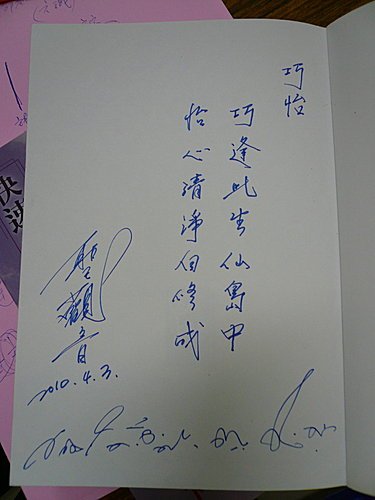 巧怡
巧逢此生仙島中
怡心清淨自修成
聖觀音
2010.4.3.
快速